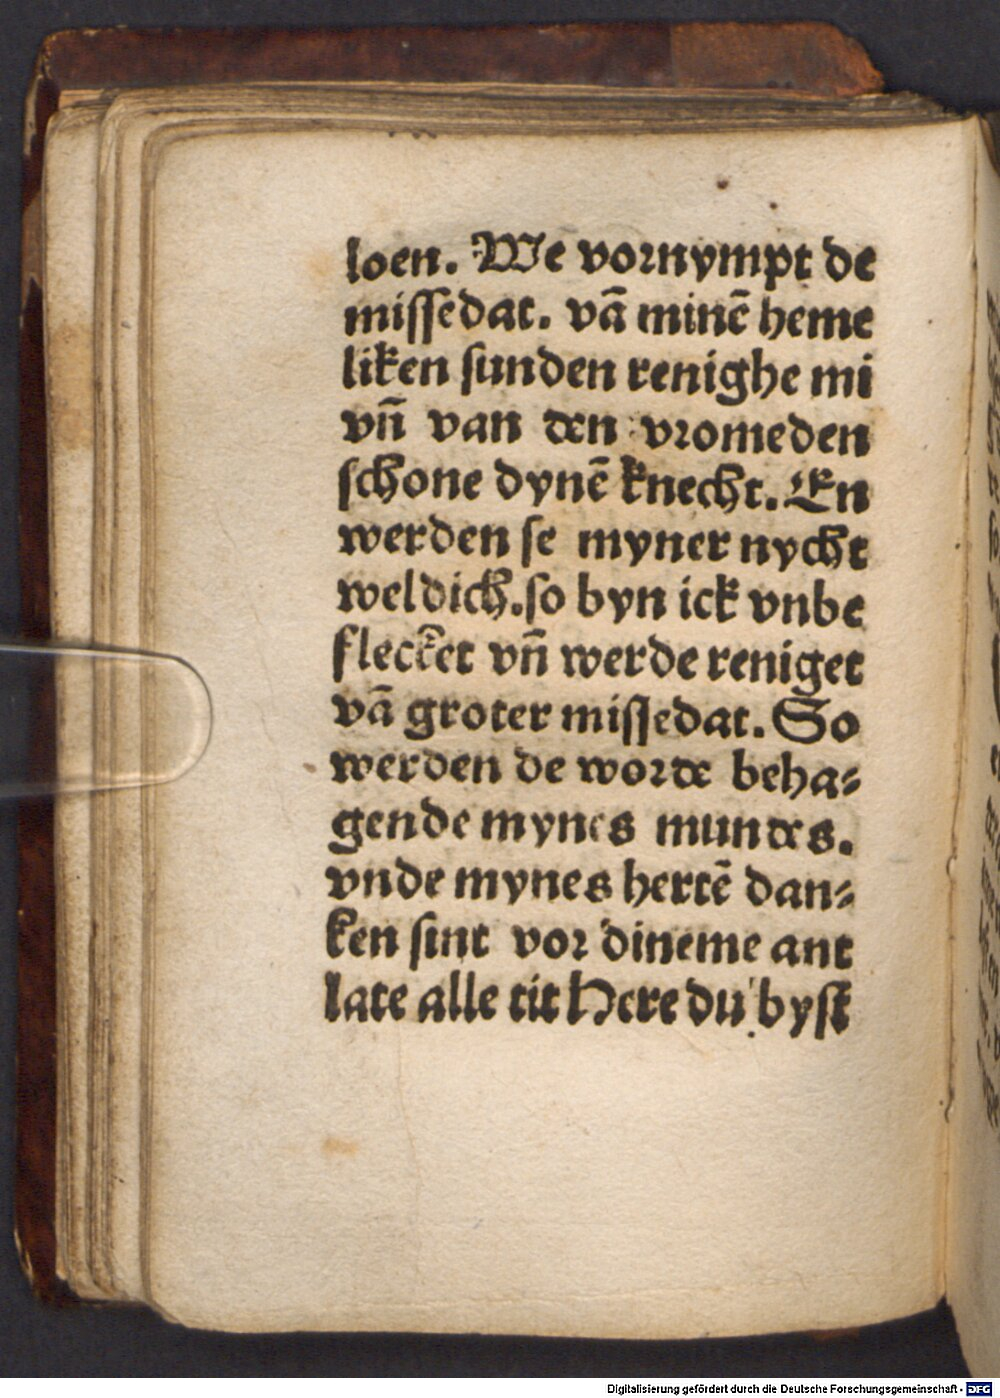 loen. We vornympt de
missedat. vā minē heme
liken sunden renighe mi
vñ van den vromeden
schone dynē knecht. En
werden se myner nycht
weldich. so byn ick vnbe
flecket vñ werde reniget
vā groter missedat. So
werden de worde beha⸗
gende mynes mundes.
vnde mynes hertē dan⸗
ken sint vor dineme ant
late alle tit Here du byst
Digitalisierung gefördert durch die Deutsche Forschungsgemeinschaft - DFG